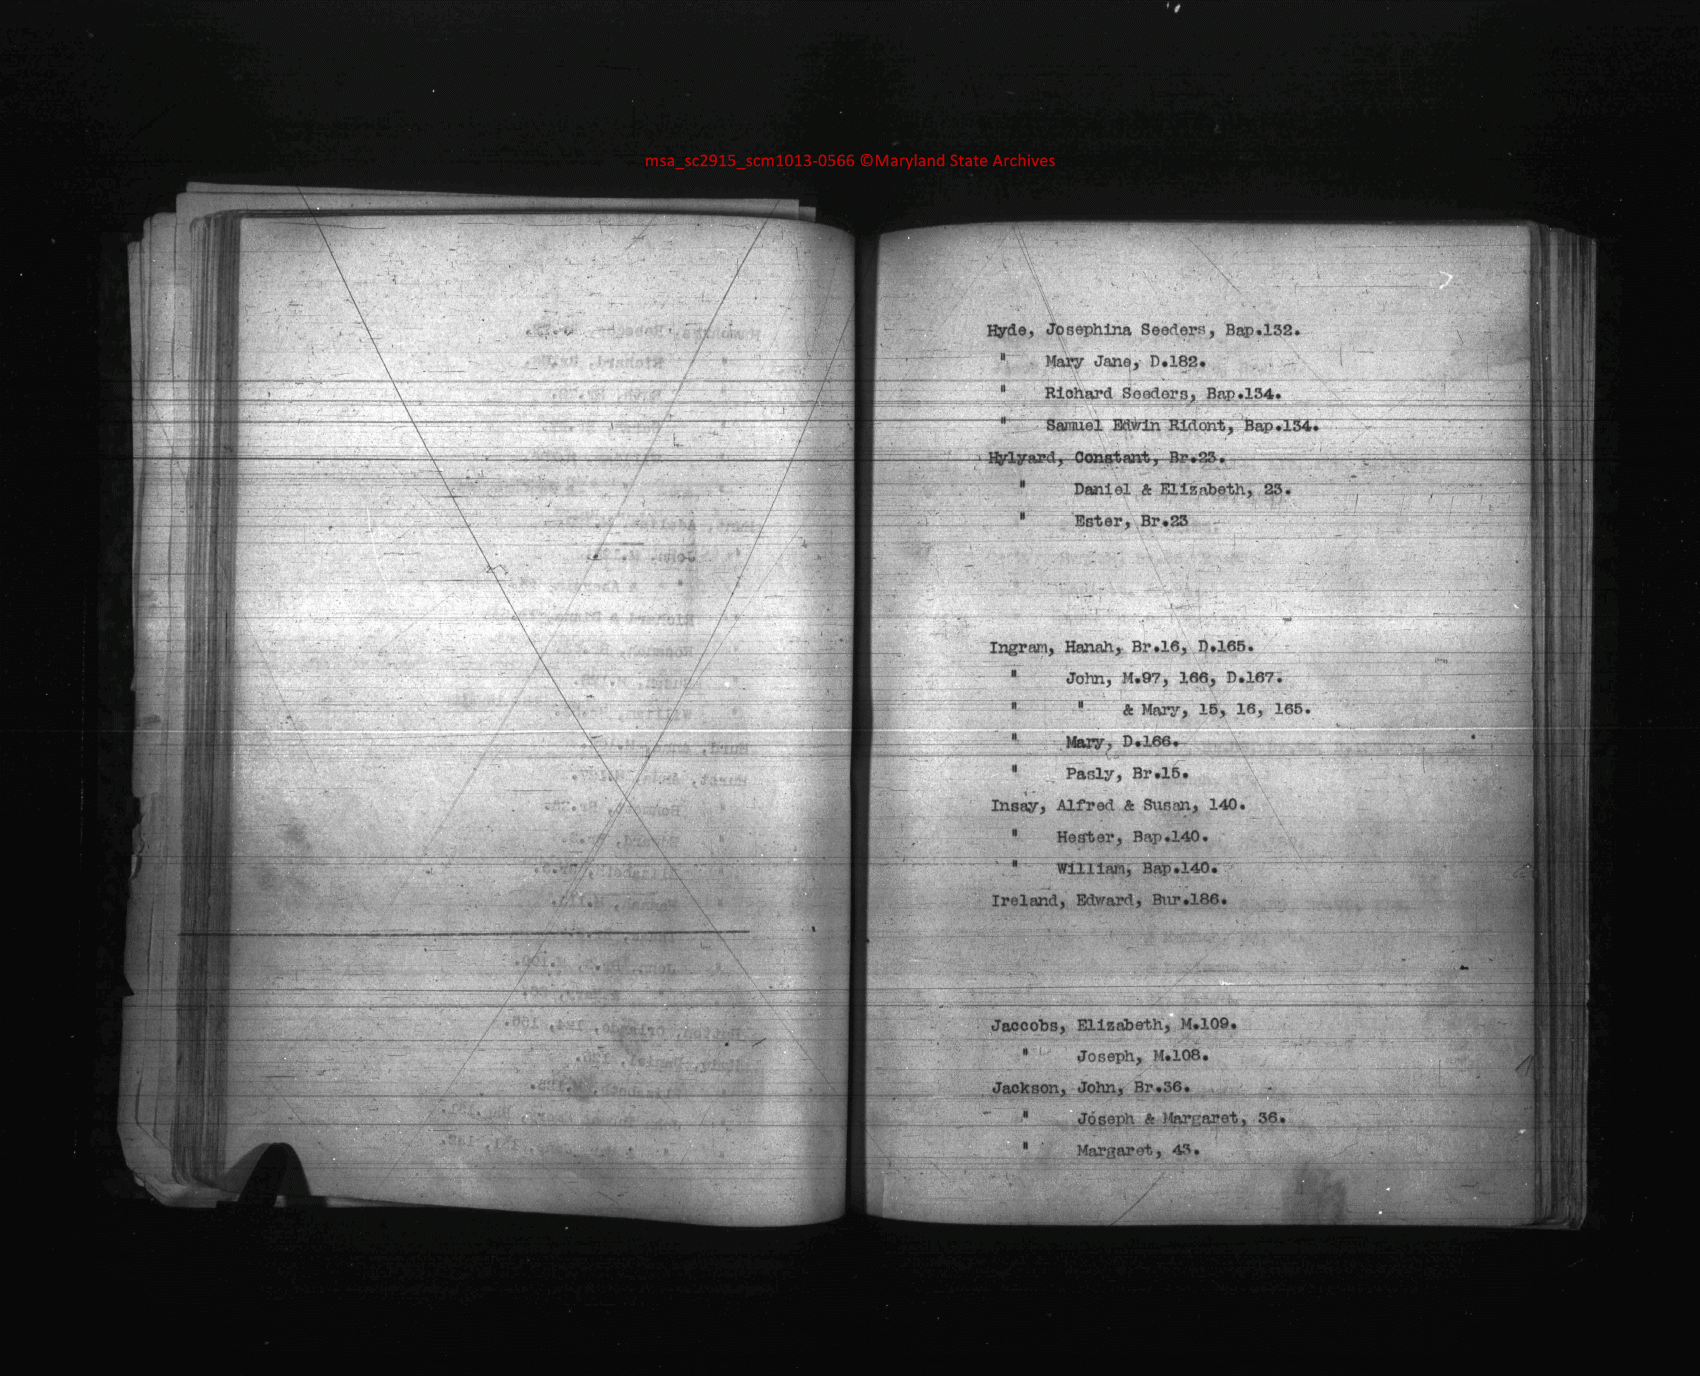 msa_sc2915_scm1013-0566 ©Maryland State Archives
Hyde, Josephina Seeders, Bap.132.
" Mary Jane, D.182.
" Richard Seeders, Bap.134.
" Samuel Edwin Ridont, Bap.134.
Hylyard, Constant, Br.23.
" Daniel & Elizabeth, 23.
" Ester, Br.23
Ingram, Hanah, Br.16, D.165.
" John, M.97, 166, D.167.
" " & Mary, 15, 16, 165.
" Mary, D.166.
" Pasly, Br.15.
Insay, Alfred & Susan, 140.
" Hester, Bap.140.
" William, Bap.140.
Ireland, Edward, Bur.186.
Jaccobs, Elizabeth, M.109.
" Joseph, M.108.
Jackson, John, Br.36.
" Joseph & Margaret, 36.
" Margaret, 43.